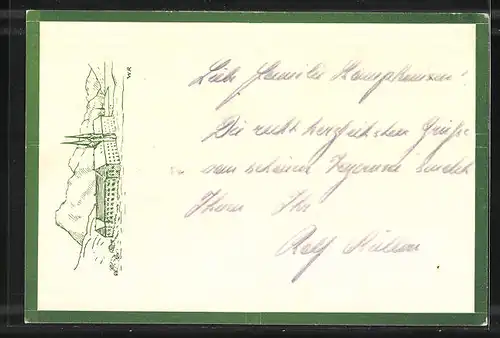 Liebe Familie Kamphausen!
Die recht herzlichsten Grüße
vom schönen sendet
Ihnen Ihr
Rolf
W.R.